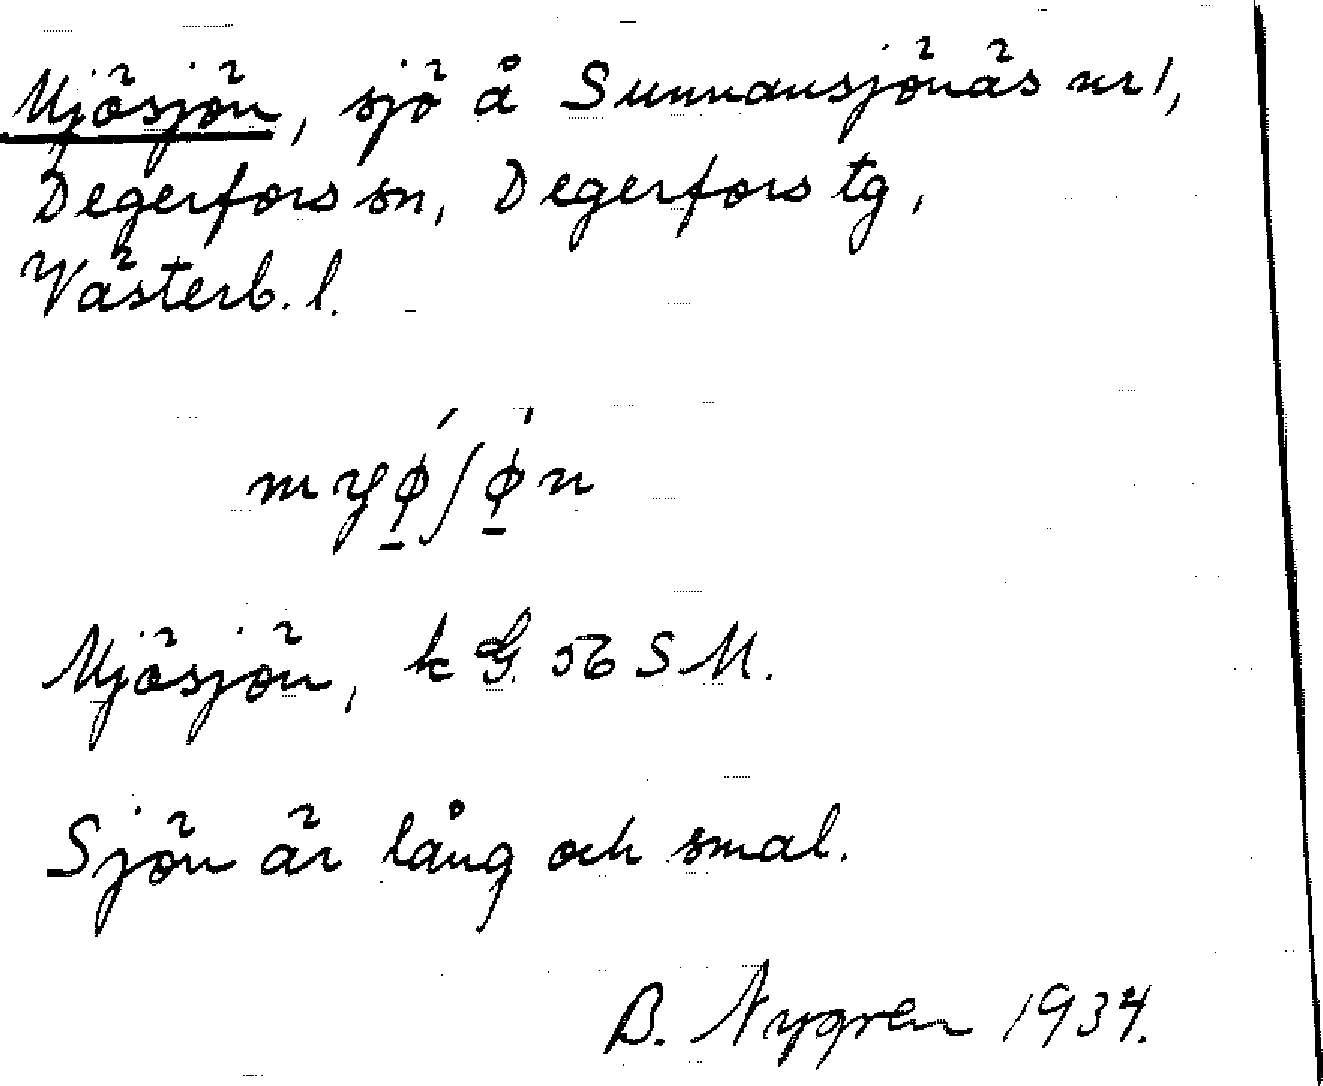 Mjösjön, sjö å Sunnansjönäs nr 1,
Degerfors sn, Degerfors tg,
Västerb. l.
Mjösjön, k G. 56 S M.
Sjön är lång och smal.
B. Nygren 1934.